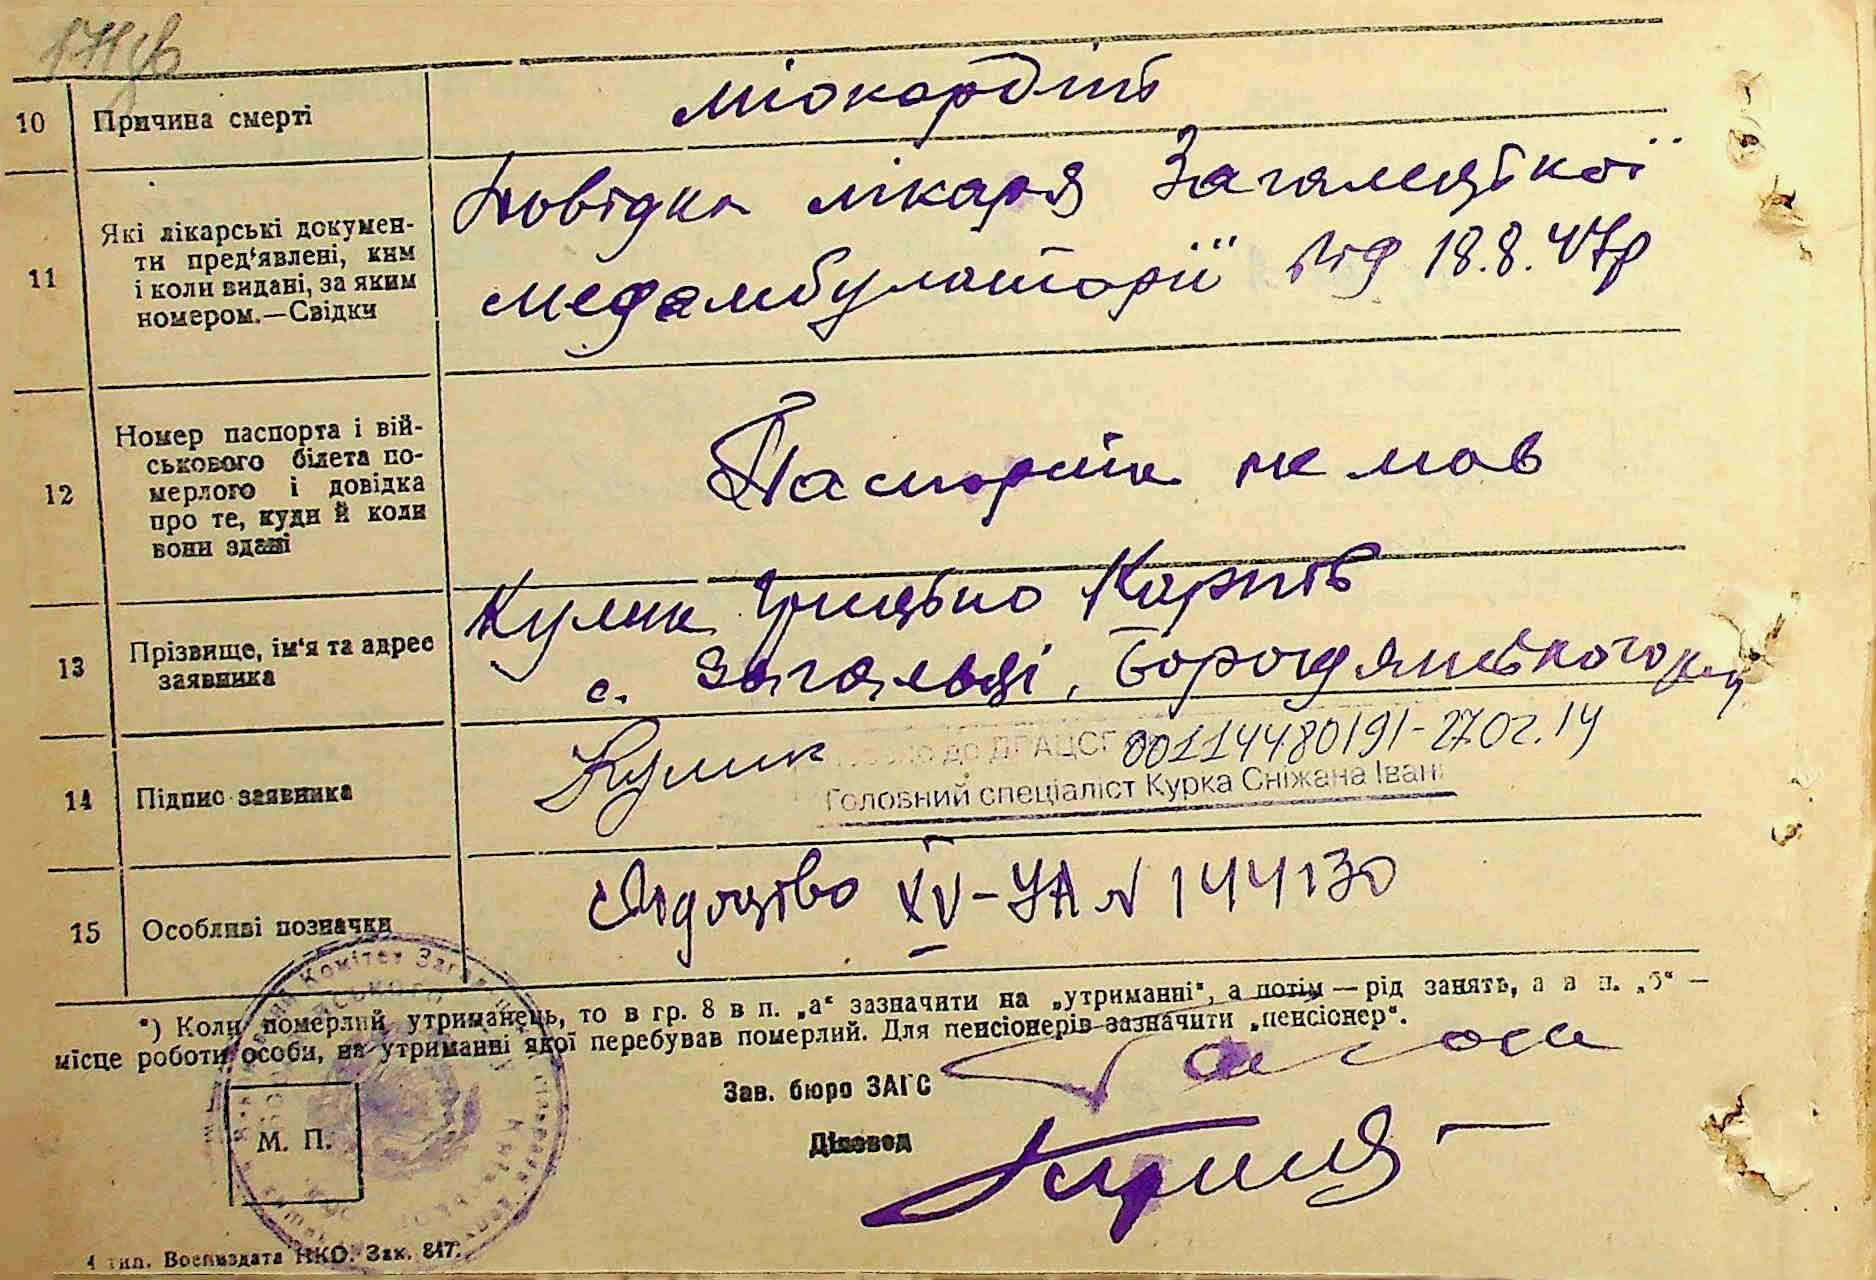 10 Причина смерті міокардіт
11 Які лікарські докумен-
ти пред'явлені, ким
і коли видані, за яким
номером.—Свідки
Довідка лікаря Загалецької
медамбулаторії від 18.8.47р
12 Номер паспорта і вій-
ськового білета по-
мерлого і довідка
про те, куди й коли
вони здані
Паспорта не мав
13 Прізвище, ім'я та адрес
заявника
Кулик Грицько Карпів
с. Загальці, Бородянського р-ну
14 Підпис заявника Кулик
до ДРАЦСГ 00114480191-27.02.14
Головний спеціаліст Курка Сніжана Івані
15 Особливі позначки Свідоцтво XV-УА N 144130
*) Коли померлий утриманець, то в гр. 8 в п. „а“ зазначити на „утриманні“, а потім — рід занять, а в п. „б“ —
місце роботи особи, на утриманні якої перебував померлий. Для пенсіонерів зазначити „пенсіонер“.
Зав. бюро ЗАГС
Діловод
М. П.
4 тип. Воениздата НКО. Зак. 847.